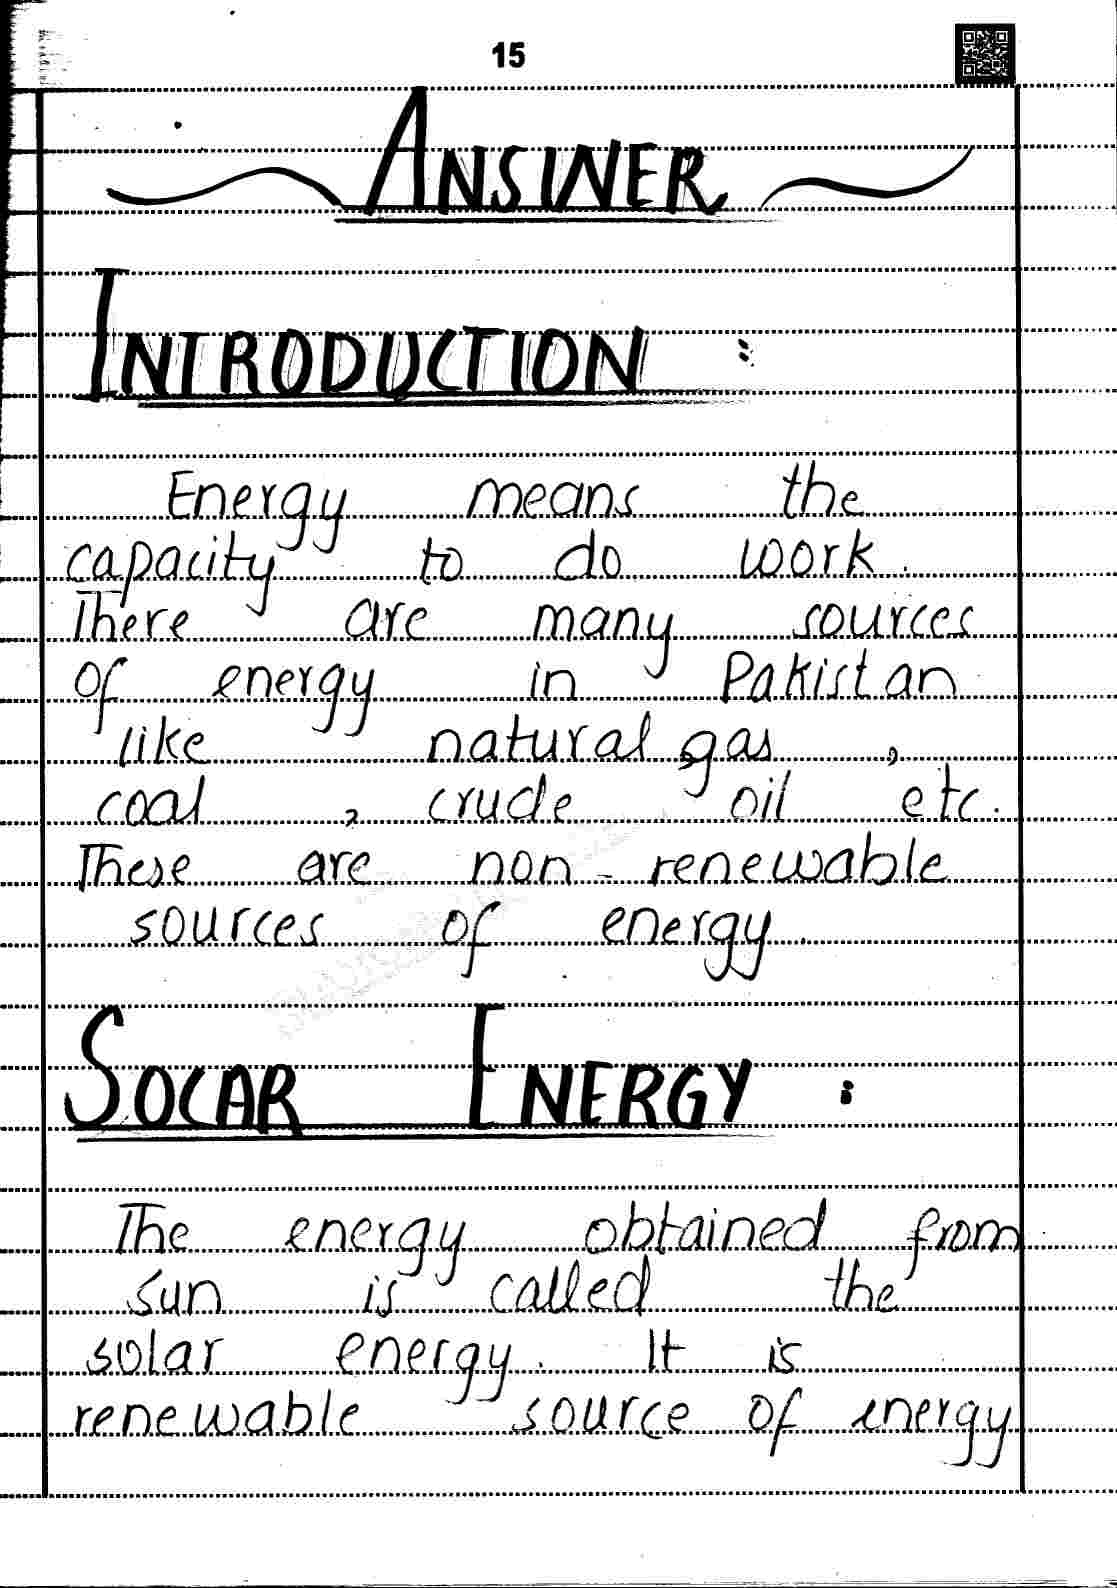 15
ANSWER
INTRODUCTION :
Energy means the
capacity to do work.
There are many sources
of energy in Pakistan
like natural gas ,
coal , crude oil etc.
These are non - renewable
sources of energy.
SOLAR ENERGY :
The energy obtained from
sun is called the
solar energy. It is
renewable source of energy